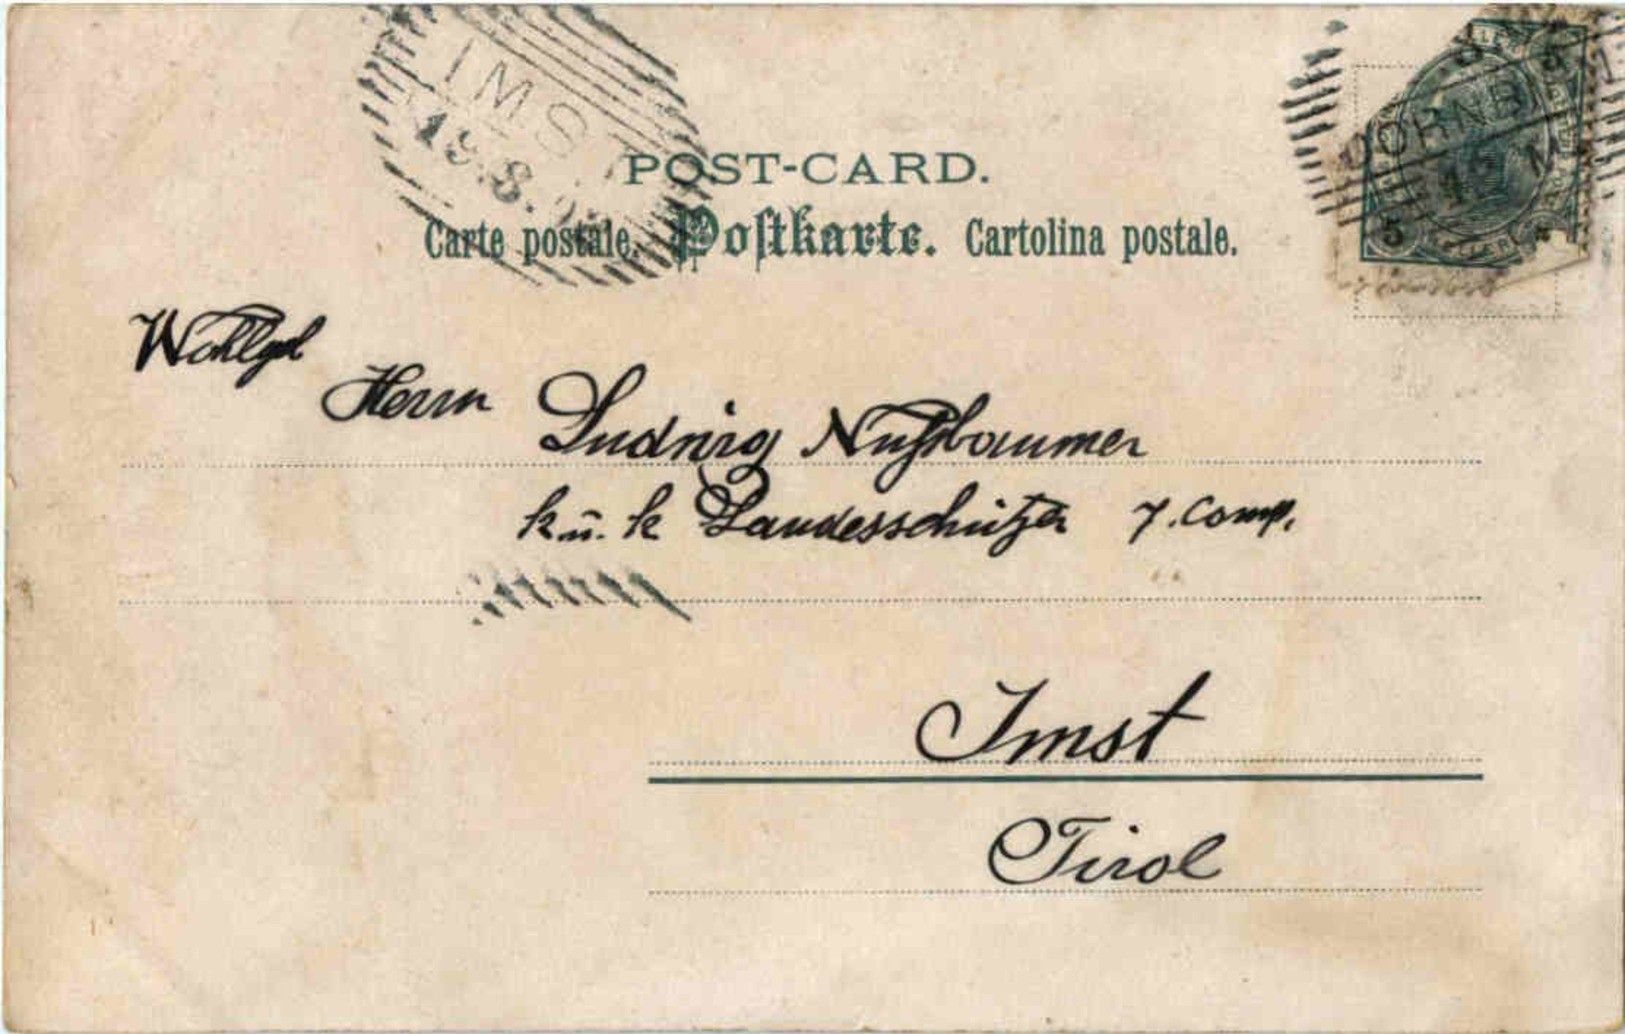 IMST
19.8.
DORNBI
12
5
POST-CARD.
Carte postale. Postkarte. Cartolina postale.
Wohlgb
Herrn Ludwig Nußbaumer
k. u. k Landesschützen 7. Comp.
Imst
Tirol